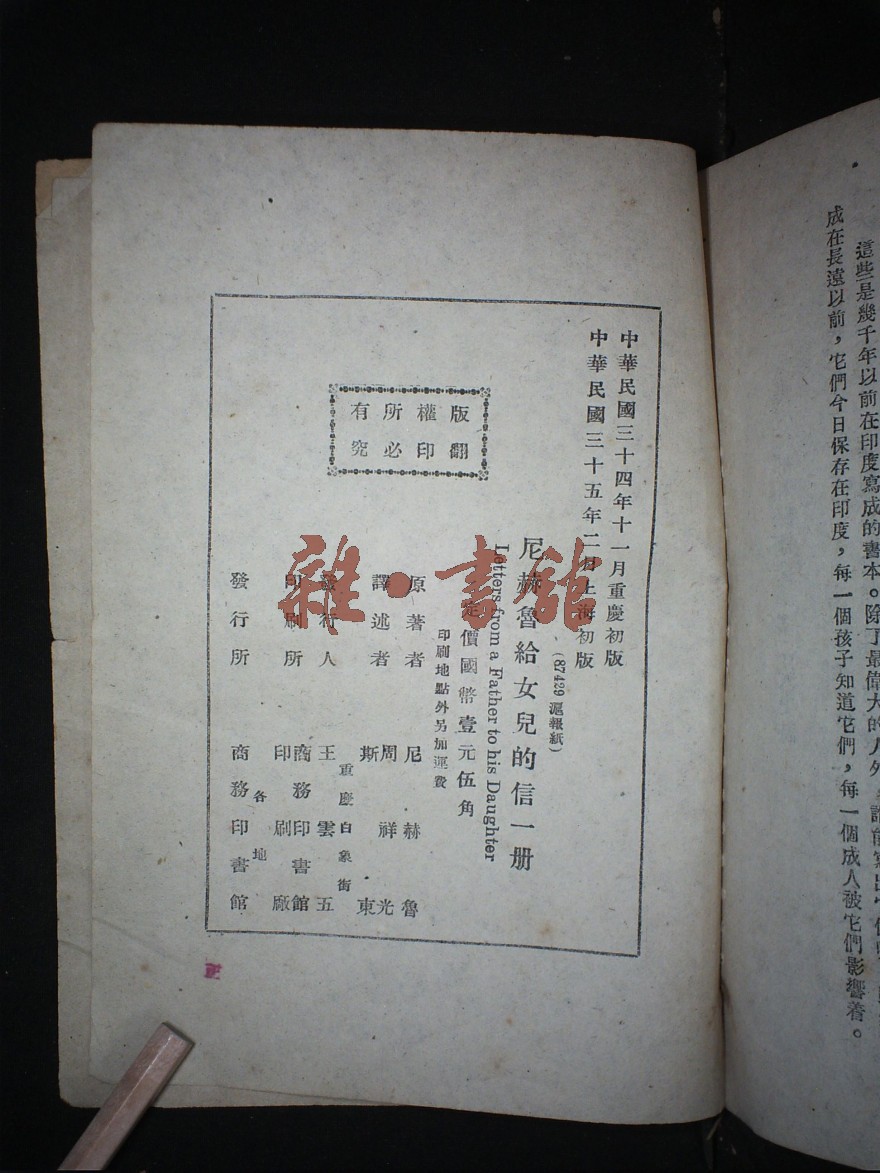 這些是幾千年以前在印度寫成的書本。除了最偉大的人外，
成在長遠以前，它們今日保存在印度，每一個孩子知道它們，每一個成人被它們影響着。
中華民國三十四年十一月重慶初版
中華民國三十五年二月上海初版
(87429 滬報紙)
尼赫魯給女兒的信一册
Letters from a Father to his Daughter
定價國幣壹元伍角
印刷地點外另加運費
版權所有
翻印必究
原著者 尼赫魯
譯述者 周祥光
斯東
重慶白象街
發行人 王雲五
印刷所 商務印書館
印刷廠
各地
發行所 商務印書館
雜·書館